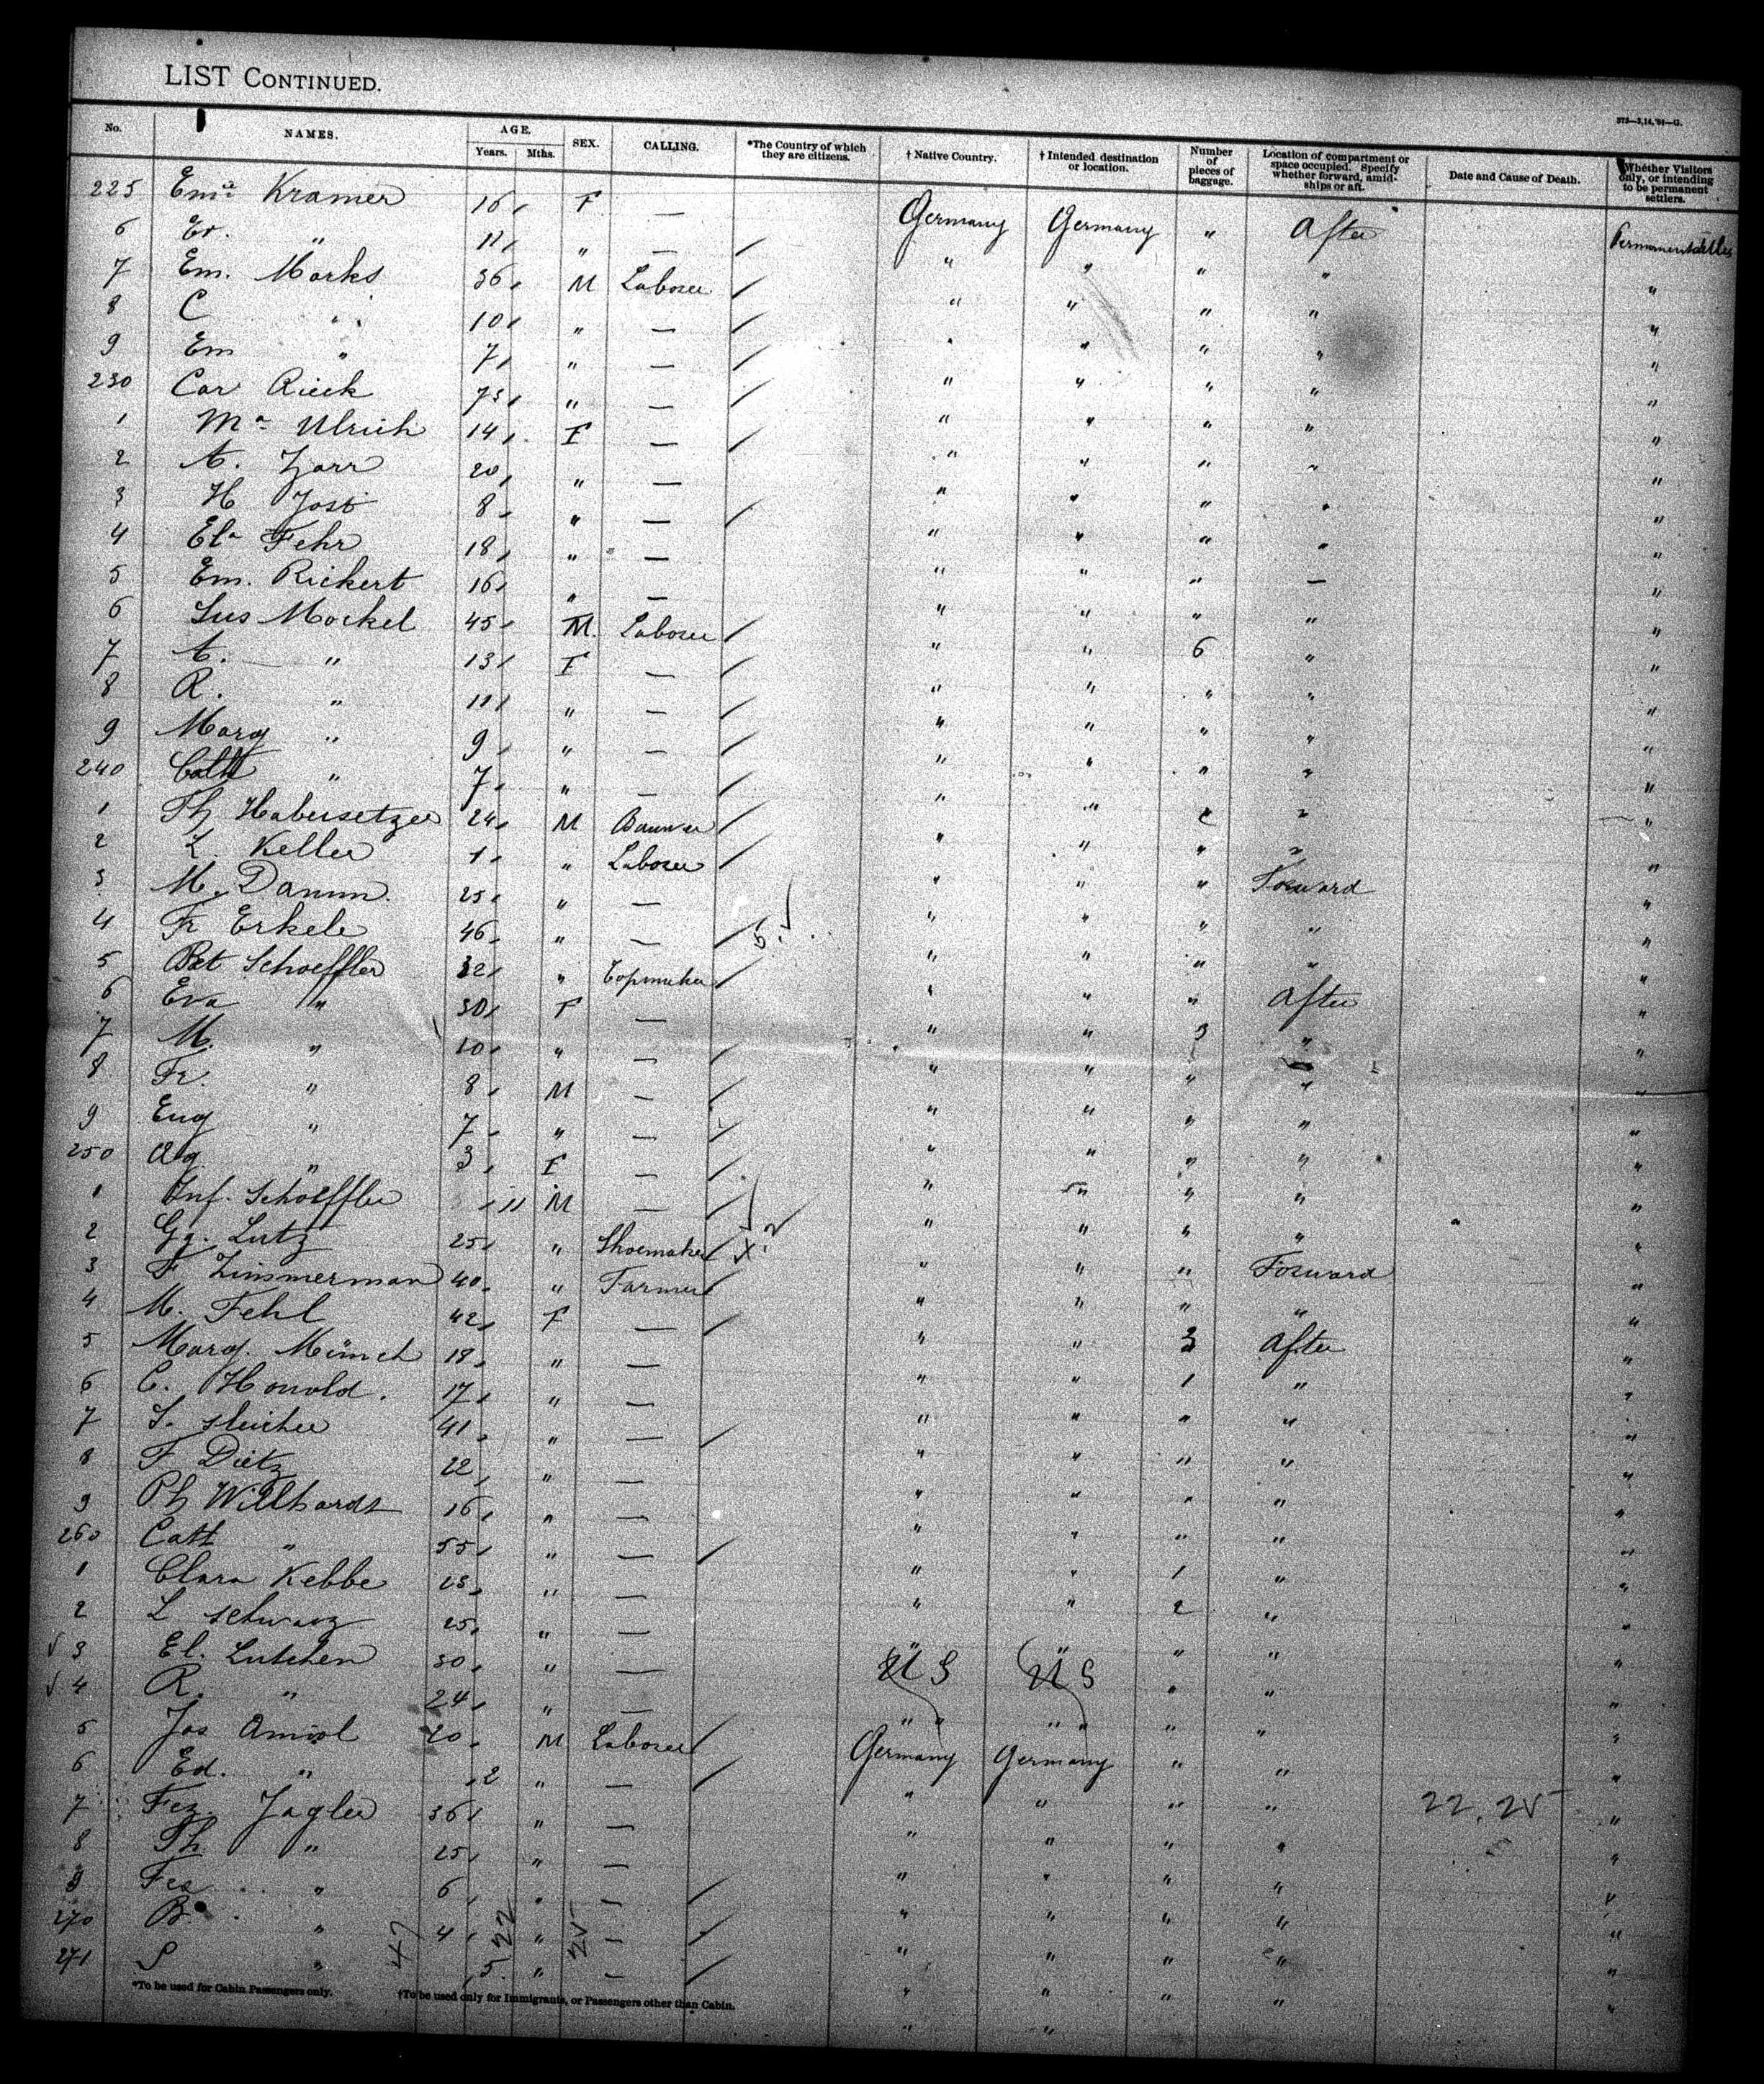 LIST CONTINUED.
373—3,14,'94—G.
No. NAMES. AGE. Years. Mths. SEX. CALLING. *The Country of which they are citizens. † Native Country. † Intended destination or location. Number of pieces of baggage. Location of compartment or space occupied. Specify whether forward, amidships or aft. Date and Cause of Death. Whether Visitors only, or intending to be permanent settlers.
225 Ema Kramer 16 F — Germany Germany " After
6 Er. " 11 " — " " " "
7 Em. Marks 36 M Laborer " " " " "
8 C " 10 " — " " " " "
9 Em " 7 " — " " " " "
230 Car Rieck 73 " — " " " " "
1 Ma Ulrich 14 F — " " " " "
2 A. Zjarr 20 " — " " " " "
3 H Jost 8 " — " " " " "
4 Ela Fehr 18 " — " " " " "
5 Em. Rickert 16 " — " " " — "
6 Mockel 45 M. Laborer " " " " "
7 A. " 13 F — " " 6 " "
8 R. " 11 " — " " " " "
9 Marg " 9 " — " " " " "
240 Cath " 7 " — " " " " "
1 Th Habersetzer 24 M " " " "
2 L. Keller 1 " Laborer " " " " "
3 M. Damm. 25 " — " " " Forward "
4 Fr Erkele 46 " — " " " " "
5 Bat Schoeffler 32 " " " " " "
6 Eva " 30 F — " " " After "
7 M. " 10 " — " " 3 " "
8 Fr. " 8 M — " " " " "
9 Eug " 7 " — " " " " "
250 Ag. " 3 F — " " " " "
1 Inf. Schoeffler 11 M — " " " " "
2 Gg. Lutz 25 " Shoemaker " " " " "
3 F Zimmerman 40 " Farmer " " " Forward "
4 M. Fehl 42 F — " " " " "
5 Marg. Münch 18 " — " " 3 After "
6 C. Honold. 17 " — " " 1 " "
7 S. 41 " — " " " " "
8 F Dietz 22 " — " " " " "
9 Ph Willhardt 16 " — " " " " "
260 Cath " 55 " — " " " " "
1 Clara Kebbe 23 " — " " 1 " "
2 L Schwarz 25 " — " " 2 " "
√ 3 El. Lutchen 30 " — U S U S " " "
√ 4 R. " 24 " — " " " " "
5 Jos Amsol 20 M Laborer Germany Germany " " "
6 Ed. " 2 " — " " " " "
7 Fez. Jagler 36 " — " " " " 22, 25 "
8 Th " 25 " — " " " " "
9 " 6 " — " " " " "
270 B. " 4 " — " " " " "
271 S " 5 " — " " " " "
47 22 25
*To be used for Cabin Passengers only. †To be used only for Immigrants, or Passengers other than Cabin.